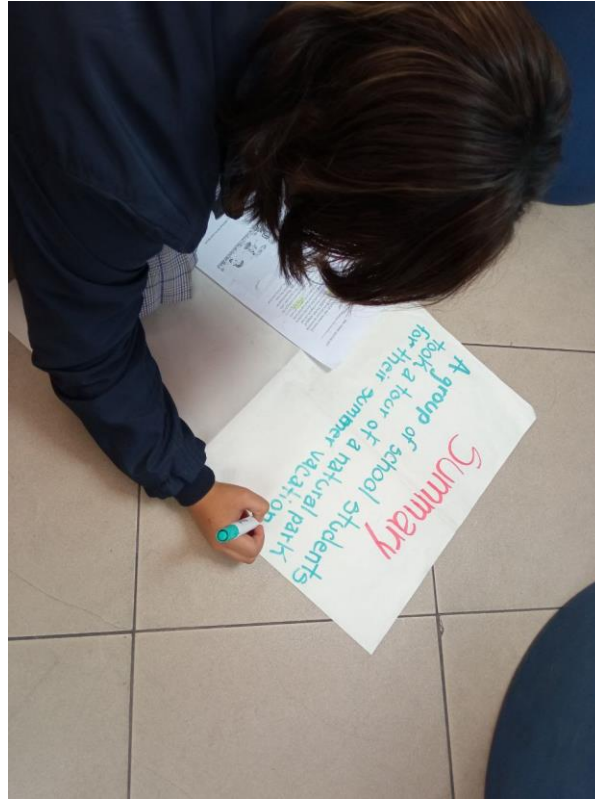 Summary
A group of school students
took a tour of a natural park
for their summer vacation